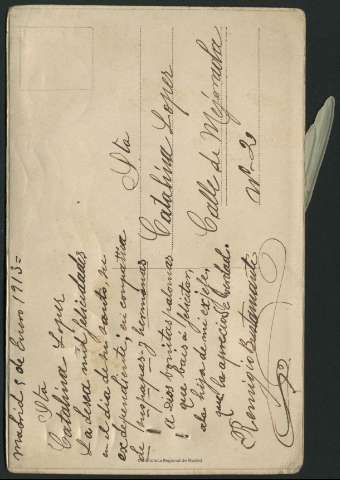 Madrid 5 de Enero 1913=
Srta
Catalina Lopez
La desea mil felicidades
en el dia de su santo, su
ex dependiente, en compañia
de sus papas y hermanas
¡A Dios bonitas palomas
que vais á felicitar,
a la hija de mi ex jefe,
que la aprecio de verdad.
Remigio Bustamante
Srta
Catalina Lopez
Calle de Mejorada
Nº 20
Biblioteca Regional de Madrid